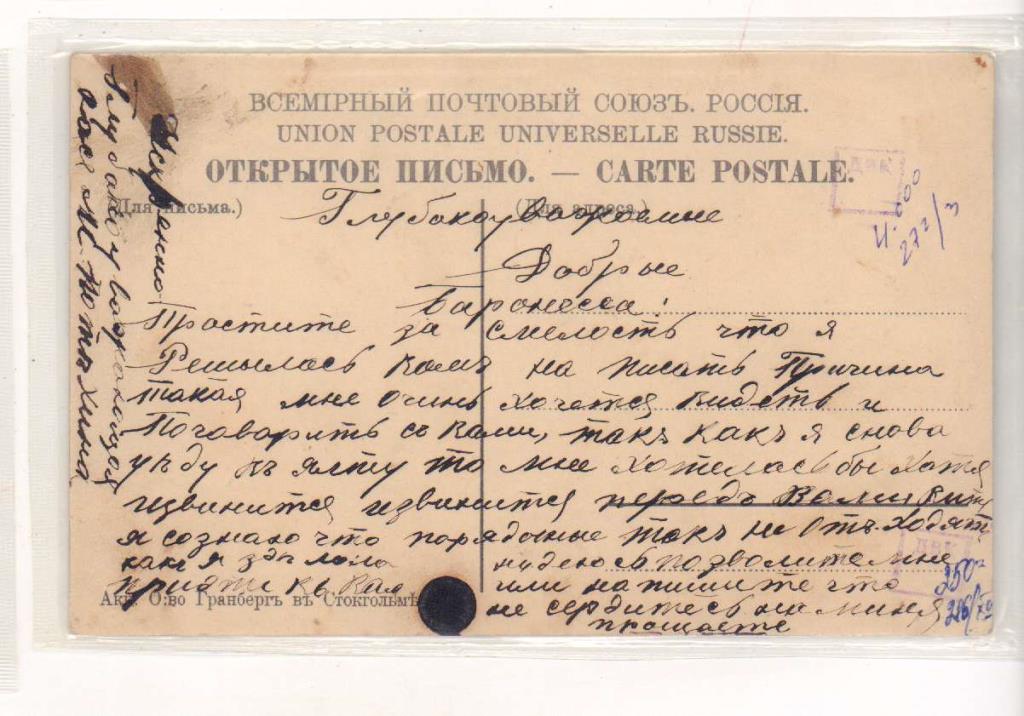 ВСЕМІРНЫЙ ПОЧТОВЫЙ СОЮЗЪ. РОССІЯ.
UNION POSTALE UNIVERSELLE RUSSIE.
ОТКРЫТОЕ ПИСЬМО. — CARTE POSTALE.
(Для письма.) (Для адреса.)
Глубокоуважаемие
Добрые
Баронесса!
Простите за смелость что я
Решылась вамъ на писать Причина
такая мне очинь хочется видеть и
Поговорить съ вами, такъ какъ я снова
уѣду въ ялту то мне хотелась бы хотя
извинится извинится передъ Вами
я сознаю что порядочные такъ не отъ ходятъ
какъ я зделала надеюсь позволите мне
придти къ вам или напишите что
не сердитесь на миня
прощаете
Акц. О:во Гранбергъ въ Стокгольмѣ
Искренно
Глубакоуважающая
вася М. Потѣхина
ДВК
И-600
272/3
ДВК
250